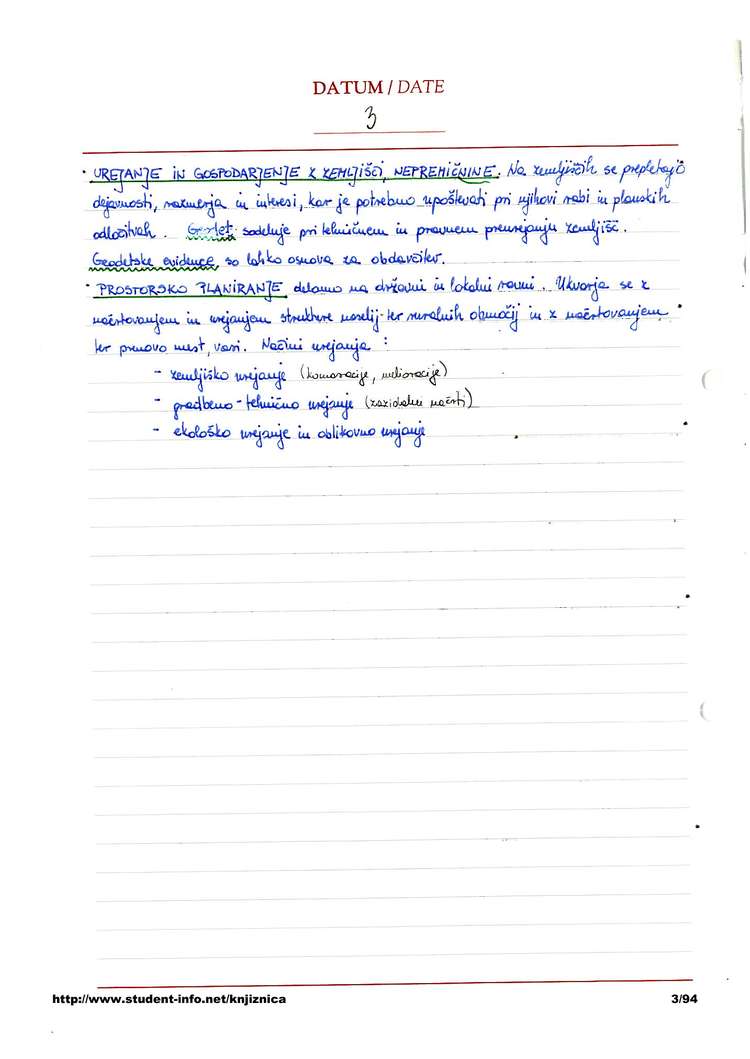 DATUM / DATE
3
• UREJANJE IN GOSPODARJENJE Z ZEMLJIŠČI, NEPREMIČNINE. Na zemljiščih se prepletajo
dejavnosti, razmerja in interesi, kar je potrebno upoštevati pri njihovi rabi in planskih
odločitvah. Geodet sodeluje pri tehničnem in pravnem preurejanju zemljišč.
Geodetske evidence, so lahko osnova za obdavčitev.
• PROSTORSKO PLANIRANJE delamo na državni in lokalni ravni. Ukvarja se z
načrtovanjem in urejanjem strukture naselij ter ruralnih območij in z načrtovanjem
ter prenovo mest, vasi. Načini urejanja :
- zemljiško urejanje (komasacije, melioracije)
- gradbeno-tehnično urejanje (zazidalni načrti)
- ekološko urejanje in oblikovno urejanje
http://www.student-info.net/knjiznica
3/94